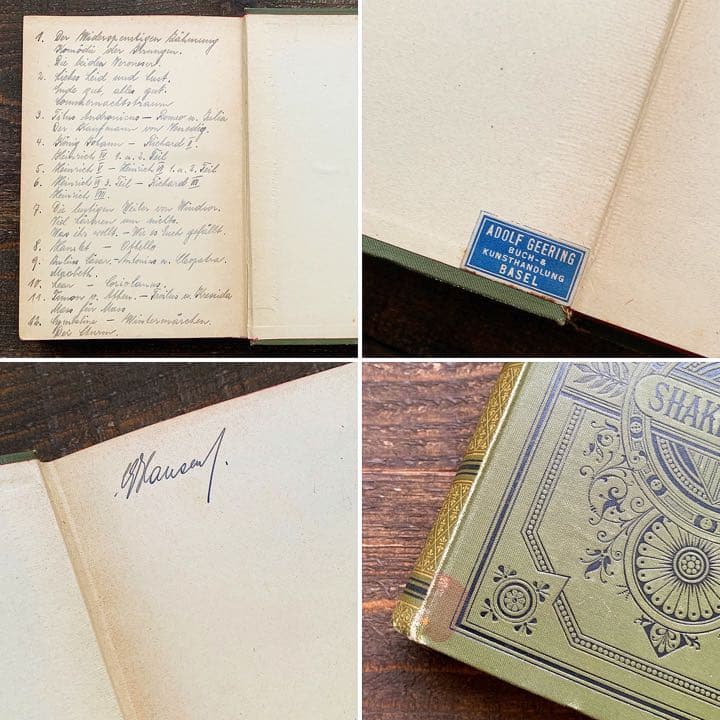 1. Der Widerspenstigen Zähmung
Komödie der Irrungen.
Die beiden Veroneser.
2. Liebes Leid und Lust.
Ende gut, alles gut.
Sommernachtstraum
3. Titus Andronicus – Romeo u. Julia
Der Kaufmann von Venedig.
4. König Johann – Richard II.
Heinrich IV 1. u. 2. Teil
5. Heinrich V – Heinrich VI 1. u. 2. Teil
6. Heinrich VI 3. Teil – Richard III
Heinrich VIII.
7. Die lustigen Weiber von Windsor.
Viel Lärmen um nichts.
Was ihr wollt. – Wie es Euch gefällt.
8. Hamlet – Othello
9. Julius Cäsar. – Antonius u. Cleopatra.
Macbeth.
10. Lear – Coriolanus.
11. Timon v. Athen. – Troilus u. Kressida
Mass für Mass
12. Cymbeline – Wintermärchen.
Der Sturm.
ADOLF GEERING
BUCH- &
KUNSTHANDLUNG
BASEL
Hansen
SHAK